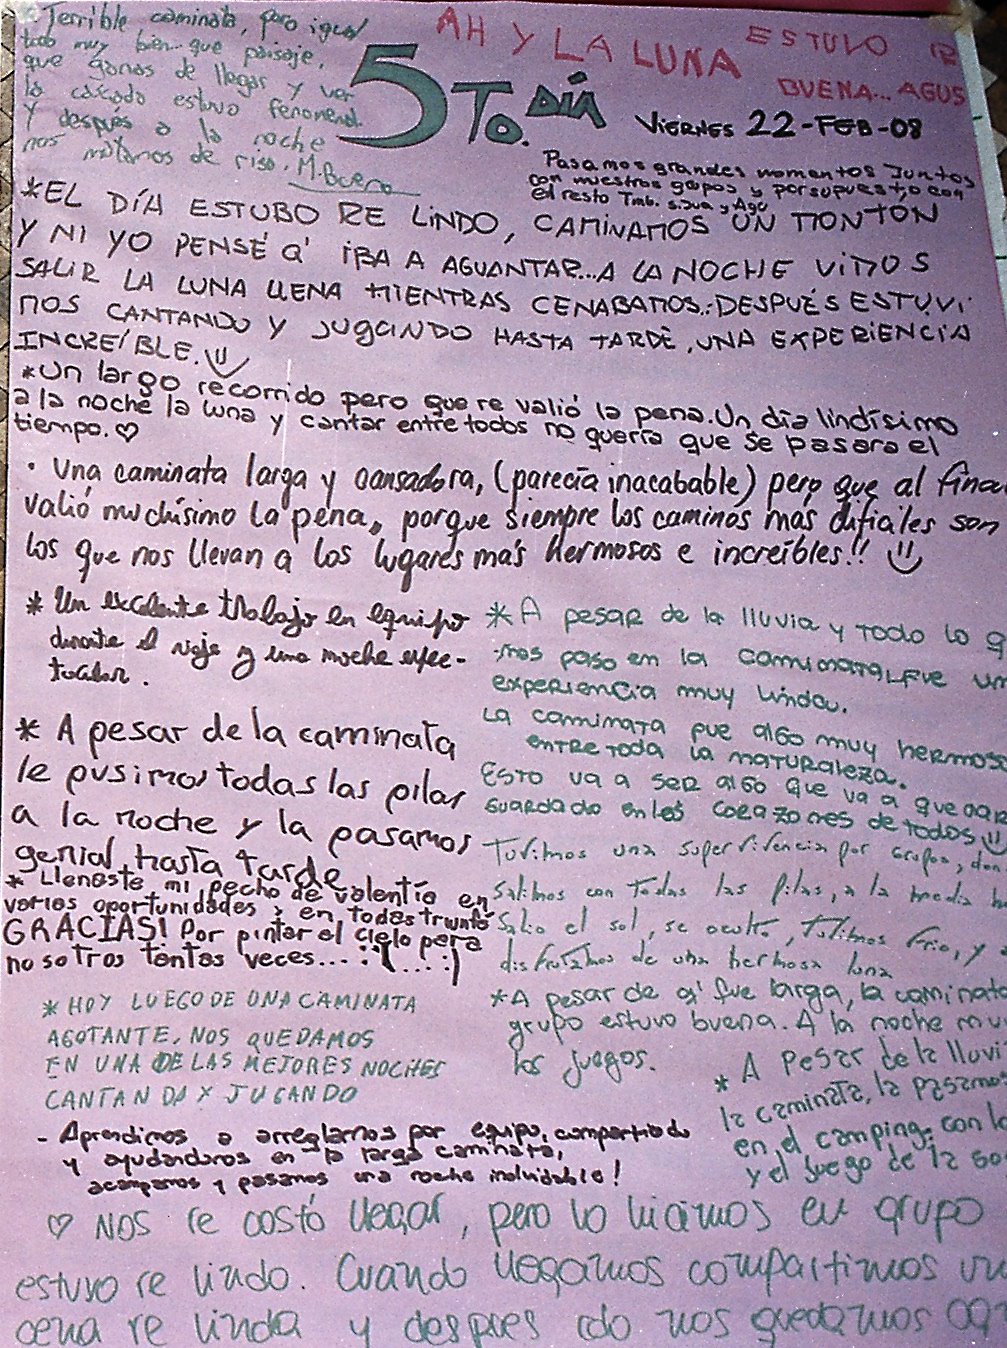 * Terrible caminata, pero igual
todo muy bien.. que paisaje,
que ganas de llegar y ver
la cascada estuvo fenomenal.
Y despues a la noche
nos matamos de risa. M.Bueno
AH Y LA LUNA ESTUVO RE
BUENA... AGUS
5TO. DÍA
VIERNES 22-FEB-08
Pasamos grandes momentos Juntos
con nuestros gupos y porsupuesto, con
el resto Tmb. Silva y Agu
*EL DÍA ESTUBO RE LINDO, CAMINAMOS UN MONTÓN
Y NI YO PENSÉ Q' IBA A AGUANTAR...A LA NOCHE VIMOS
SALIR LA LUNA LLENA MIENTRAS CENABAMOS.:DESPUÉS ESTUVI
MOS CANTANDO Y JUGANDO HASTA TARDE, UNA EXPERIENCIA
INCREÍBLE.
*Un largo recorrido pero que re valió la pena.Un día lindísimo
a la noche la luna y cantar entre todos no quería que se pasara el
tiempo.♡
· Una caminata larga y cansadora, (parecía inacabable) pero que al final
valió muchísimo la pena, porque siempre los caminos más difíciles son
los que nos llevan a los lugares más hermosos e increíbles!!
* Un excelente trabajo en equipo
durante el viaje y una noche espec-
tacular.
* A pesar de la caminata
le pusimos todas las pilas
a la noche y la pasamos
genial, hasta tarde
* Llenaste mi pecho de valentía en
varias oportunidades y en todas triunfé
GRACIAS! Por pintar el cielo para
nosotros tantas veces...
* HOY LUEGO DE UNA CAMINATA
AGOTANTE, NOS QUEDAMOS
EN UNA DE LAS MEJORES NOCHES
CANTANDO Y JUGANDO
- Aprendimos a arreglarnos por equipo, compartiendo
y ayudandonos en la larga caminata,
acampamos y pasamos una noche inolvidable!
* A pesar de la lluvia y todo lo q
nos paso en la caminata, fue un
experiencia muy linda.
La caminata fue algo muy hermoso
entre toda la naturaleza.
Esto va a ser algo que va a quedar
guardado en los corazones de todos
Tuvimos una supervivencia por grupos, don
Salimos con todas las pilas, a la media h
Salio el sol, se oculto, Tuvimos frio, y
disfrutamos de una hermosa luna
*A pesar de q' fue larga, la caminata
grupo estuvo buena. A la noche mu
los juegos.
* A pesar de la lluvi
la caminata, la pasamos
en el camping. con la
y el juego de la so
♡ Nos re costó llegar, pero lo hicimos en grupo
estuvo re lindo. Cuando llegamos compartimos un
cena re linda y despues nos quedamos ca